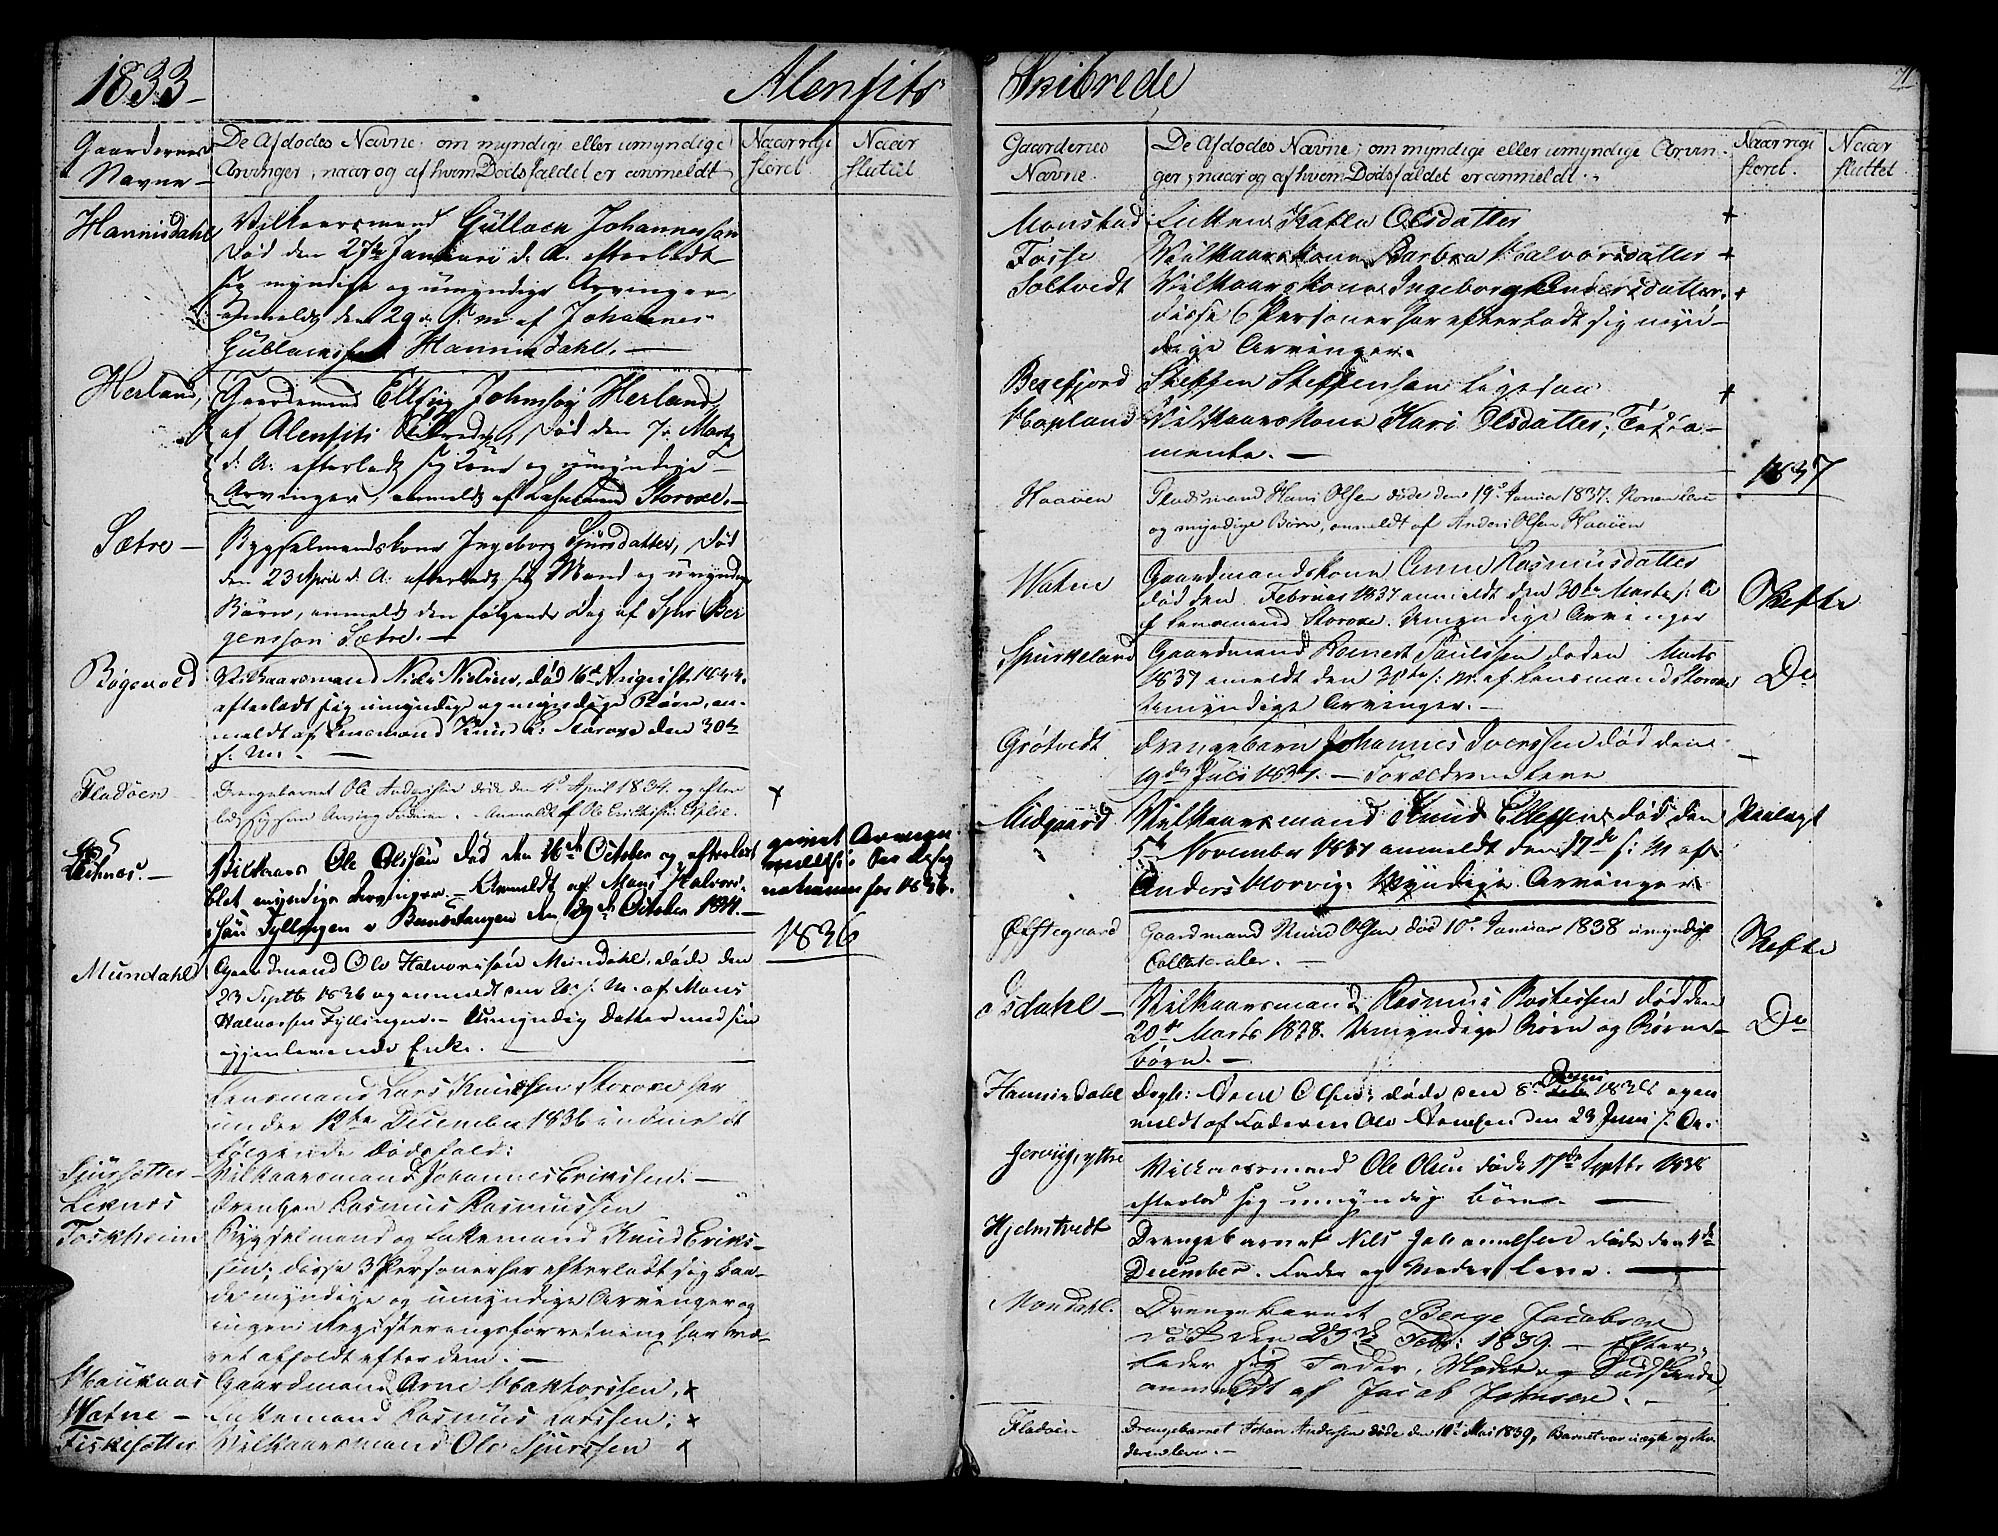 1833 – Alenfits
Gaardernes Navne –
De Afdødes Navne; om myndige eller umyndige Arvinger, naar og af hvem Dødsfaldet er anmeldt
Naar regi steret
Naar sluttet
Hannisdahl
Vilkaarsmand Gullack Johannessen
død den 27de Januari d. A. efterladt
sig myndige og umyndige Arvinger
Anmeldt den 29 s. M. af Johannes
Gullacksen Hannisdahl. –
Herland,
Gaardmand Elling Johnsøn Herland
af Alenfits Skibrede, død den 7de Martz
d: A: efterladt sig Kone og umyndige
Arvinger, anmeldt af Lensmand Storoxe. –
Sætre –
Bygselmandskone Ingeborg Sjursdatter, død
den 23 April d. A: efterladt sig Mand og umyndige
Børn, anmeldt den følgende Dag af Sjur Ber
gensson Sætre. –
Bøgevold
Vilkaarsmand Niels Nielsen, død 16de August 1833.
efterladt sig umyndige og myndige Børn, an-
meldt af Lensmand Knud L. Storoxe den 30te
s. M. –
Fladøen
Drengebarnet Ole Andersen døde den 4de April 1834. og efter
lod sig som Arving Faderen. – Anmeldt af Ole Erichsen Espelie.
x
Leknes. –
Vilkaars Ole Olsson død den 16de October og efterladt
blot myndige Arvinger. – Anmeldt af Mons Halvors-
søn Fyllingen den 29de October 1834. –
1836
Mundahl
Gaardmand Ole Halvorssøn Mundahl, døde den
23 Septbr 1836 og anmeldt den s. M. af Mons
Halvorsen Fyllingen. – Umyndig Datter med sin
igjenlevende Enke. –
Lensmand Lars Knudssen Storoxe har
under 12te December 1836 indmeldt
følgende Dødsfald:
Sjursætter –
Vilkaarsmand Johannes Erikssen. –
Leknes
Drengen Rasmus Rasmussen
Toskheim
Bygselmand og Enkemand Knud Eriks-
sen; disse 3 Personer har efterladt sig baa-
de myndige og umyndige Arvinger og
ingen Registeringsforretning har væ-
ret afholdt efter dem. –
Haukaas
Gaardmand Arne Haktorssen, x
Watne –
Enkemand Rasmus Larssen; x
Fiskesætter
Vilkaarsmand Ole Sjurssen x
Skibrede
71
Gaardenes Navne.
De Afdødes Navne; om myndige eller umyndige Arvin-
ger, naar og af hvem Dødsfaldet er anmeldt.
Naar regi steret.
Naar sluttet.
Monstad
Enken Katla Olsdatter +
Fosse
Vilkaarskone Barbra Halvorsdatter +
Soltvedt
Vilkaarskone Ingeborg Andersdatter. +
disse 6 Personer har efterladt sig myn-
dige Arvinger.
Bergfjord
Steffen Steffensen ligesaa +
Hopland
Vilkaarskone Kari Olsdatter; Testa-
mente. –
1837
Haaøen
Pladsmand Hans Olsen døde den 19de Januar 1837. Konen leve
og myndige Børn, anmeldt af Anders Olsen Haaøen
Watne
Gaardmandskone Anne Rasmusdatter
død den Februar 1837 anmeldt den 30te Marts s: A
af Lensmand Storoxe. Umyndige Arvinger
Skifte
Spurkeland
Gaardmand Bernt Paulssen død den Marts
1837 anmeldt den 30te s: M. af Lensmand Storoxe
Umyndige Arvinger. –
Do
Grøtvedt
Drengebarn Johannes Iverssen død den
19de Juli 1837. – Forældrene leve
–
Midgaard
Vilkaarsmand Knud Ellefsen død den
5te November 1837 anmeldt den 17de s: M af
Anders Norvig. Myndige Arvinger
Henlagt
Øfstegaard
Gaardmand Knud Olsen død 10de Januar 1838 umyndige
Collateraler. –
Skifte
Isdahl –
Vilkaarsmand Rasmus Bastessen død den
20de Marts 1838. Umyndige Børn og Børne-
børn. –
Do
Hannisdahl
Arne Olsen, døde den 8de Juni 1838 og an
meldt af Faderen Ole Arnesen den 23 Juni s. A.
Hervig, ytre
Vilkaarsmand Ole Olsen døde 17de Septbr 1838
efterlod sig umyndige Børn. –
Hjelmtvedt
Drengebarnet Nils Johannessen døde den 4de
December. Fader og Moder leve. –
Mondahl.
Drengebarnet Benge Jacobsen
død den 25de Febr: 1839. – Efter-
lader sig Fader, Moder og Sødskende,
anmeldt af Jacob Johnsen. –
Fladøen
Drengebarnet Johan Andersen døde den 10de Mai 1839, Barnet var uægte og Mo
deren leve. –